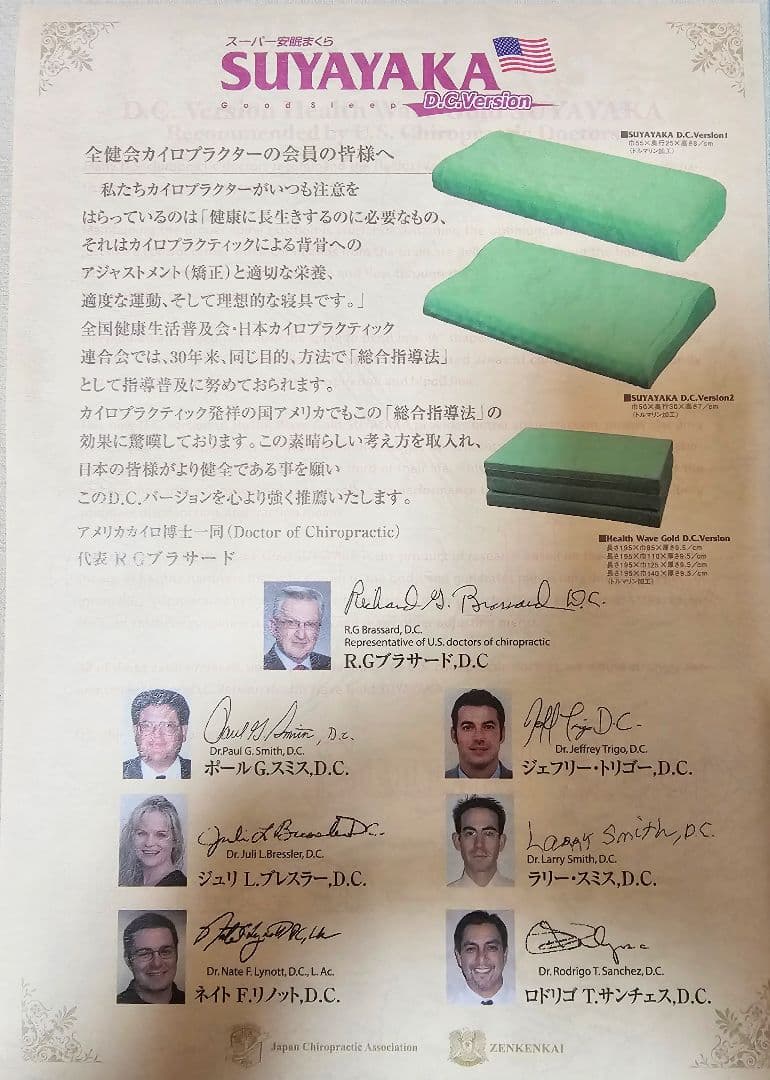 スーパー安眠まくら
SUYAYAKA
Good Sleep
D.C.Version
全健会カイロプラクターの会員の皆様へ
私たちカイロプラクターがいつも注意を
はらっているのは「健康に長生きするのに必要なもの、
それはカイロプラクティックによる背骨への
アジャストメント(矯正)と適切な栄養、
適度な運動、そして理想的な寝具です。」
全国健康生活普及会・日本カイロプラクティック
連合会では、30年来、同じ目的、方法で「総合指導法」
として指導普及に努めておられます。
カイロプラクティック発祥の国アメリカでもこの「総合指導法」の
効果に驚嘆しております。この素晴らしい考え方を取入れ、
日本の皆様がより健全である事を願い
このD.C.バージョンを心より強く推薦いたします。
アメリカカイロ博士一同(Doctor of Chiropractic)
代表 R.Gブラサード
■SUYAYAKA D.C.Version1
巾55×奥行25×高さ8/cm
(トルマリン加工)
■SUYAYAKA D.C.Version2
巾50×奥行30×高さ7/cm
(トルマリン加工)
■Health Wave Gold D.C.Version
長さ195×巾85×厚さ9.5/cm
長さ195×巾110×厚さ9.5/cm
長さ195×巾125×厚さ9.5/cm
長さ195×巾140×厚さ9.5/cm
(トルマリン加工)
Richard G. Brassard D.C.
R.G Brassard, D.C.
Representative of U.S. doctors of chiropractic
R.Gブラサード,D.C
Paul G. Smith, D.C.
Dr.Paul G. Smith, D.C.
ポールG.スミス,D.C.
Jeff Trigo D.C.
Dr. Jeffrey Trigo, D.C.
ジェフリー・トリゴー,D.C.
Juli L Bressler D.C.
Dr. Juli L.Bressler, D.C.
ジュリ L.ブレスラー,D.C.
Larry Smith, D.C.
Dr. Larry Smith, D.C.
ラリー・スミス,D.C.
Dr. Nate F. Lynott, D.C., L. Ac.
ネイト F.リノット,D.C.
Dr. Rodrigo T. Sanchez, D.C.
ロドリゴ T.サンチェス,D.C.
Japan Chiropractic Association
ZENKENKAI